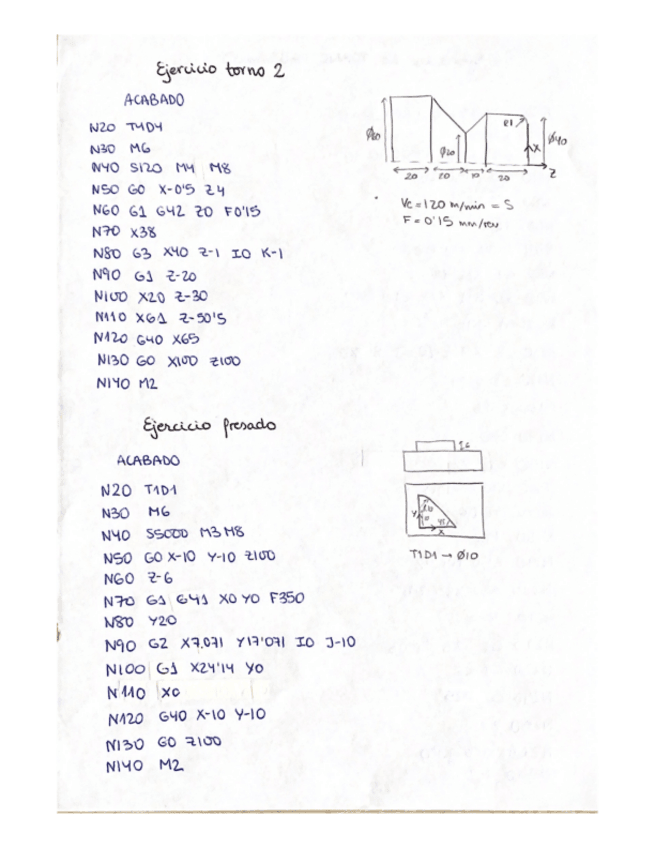 Ejercicio torno 2
ACABADO
N20 T4D4
N30 M6
N40 S120 M4 M8
N50 G0 X-0'5 Z4
N60 G1 G42 Z0 F0'15
N70 X38
N80 G3 X40 Z-1 I0 K-1
N90 G1 Z-20
N100 X20 Z-30
N110 X61 Z-50'5
N120 G40 X65
N130 G0 X100 Z100
N140 M2
Ø20
R1
Ø40
X
Z
20 20 10 20
Vc = 120 m/min = S
F = 0'15 mm/rev
Ejercicio fresado
ACABADO
N20 T1D1
N30 M6
N40 S5000 M3 M8
N50 G0 X-10 Y-10 Z100
N60 Z-6
N70 G1 G41 X0 Y0 F350
N80 Y20
N90 G2 X7.071 Y17'071 I0 J-10
N100 G1 X24'14 Y0
N110 X0
N120 G40 X-10 Y-10
N130 G0 Z100
N140 M2
Y
X
45
T1D1 → Ø10